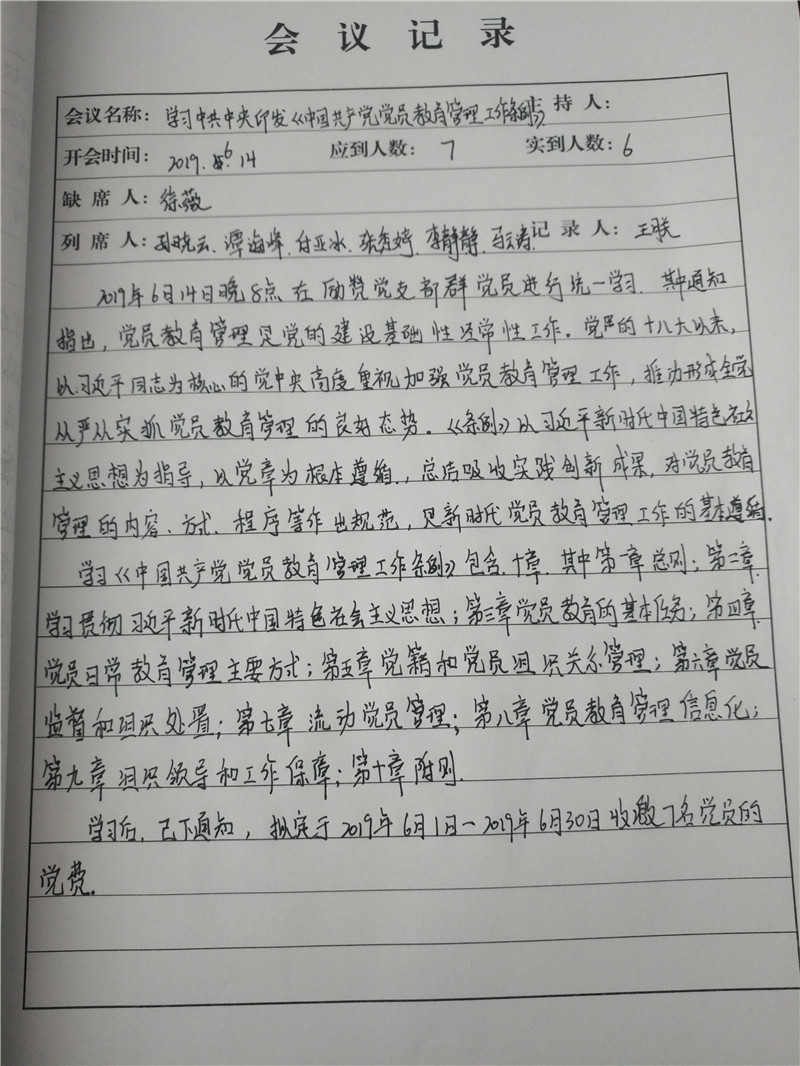 会议记录
会议名称: 学习中共中央印发《中国共产党党员教育管理工作条例》 主持人:
开会时间: 2019.6.14 应到人数: 7 实到人数: 6
缺席人: 徐薇
列席人: 孙晓云、谭海峰、付亚冰、张秀婷、李静静、马云涛 记录人: 王联
2019年6月14日晚8点在励赞党支部群党员进行统一学习.其中通知
指出,党员教育管理是党的建设基础性经常性工作。党的十八大以来,
以习近平同志为核心的党中央高度重视加强党员教育管理工作,推动形成全党
从严从实抓党员教育管理的良好态势。《条例》以习近平新时代中国特色社会
主义思想为指导,以党章为根本遵循,总结吸收实践创新成果,对党员教育
管理的内容、方式、程序等作出规范,是新时代党员教育管理工作的基本遵循.
学习《中国共产党党员教育管理工作条例》包含十章.其中第一章总则;第二章
学习贯彻习近平新时代中国特色社会主义思想;第三章党员教育的基本任务;第四章
党员日常教育管理主要方式;第五章党籍和党员组织关系管理;第六章党员
监督和组织处置;第七章流动党员管理;第八章党员教育管理信息化;
第九章组织领导和工作保障;第十章附则.
学习后,已下通知,拟定于2019年6月1日—2019年6月30日收缴7名党员的
党费.